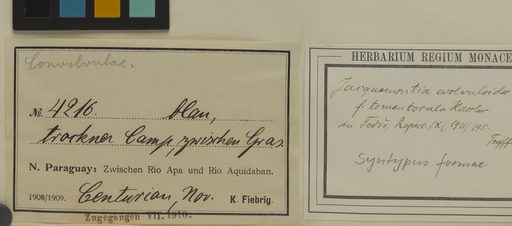 Convolvulac.
No. 4216. blau,
trockner Camp, zwischen Gras
N. Paraguay: Zwischen Rio Apa und Rio Aquidaban.
1908/1909. Centurion, Nov. K. Fiebrig.
Zugegangen VII. 1910.
HERBARIUM REGIUM MONACE
Jacquemontia evolvuloides
f. tomentosula Hassler
in Fedde, Repert. IX (1911) 195.
Syntypus formae